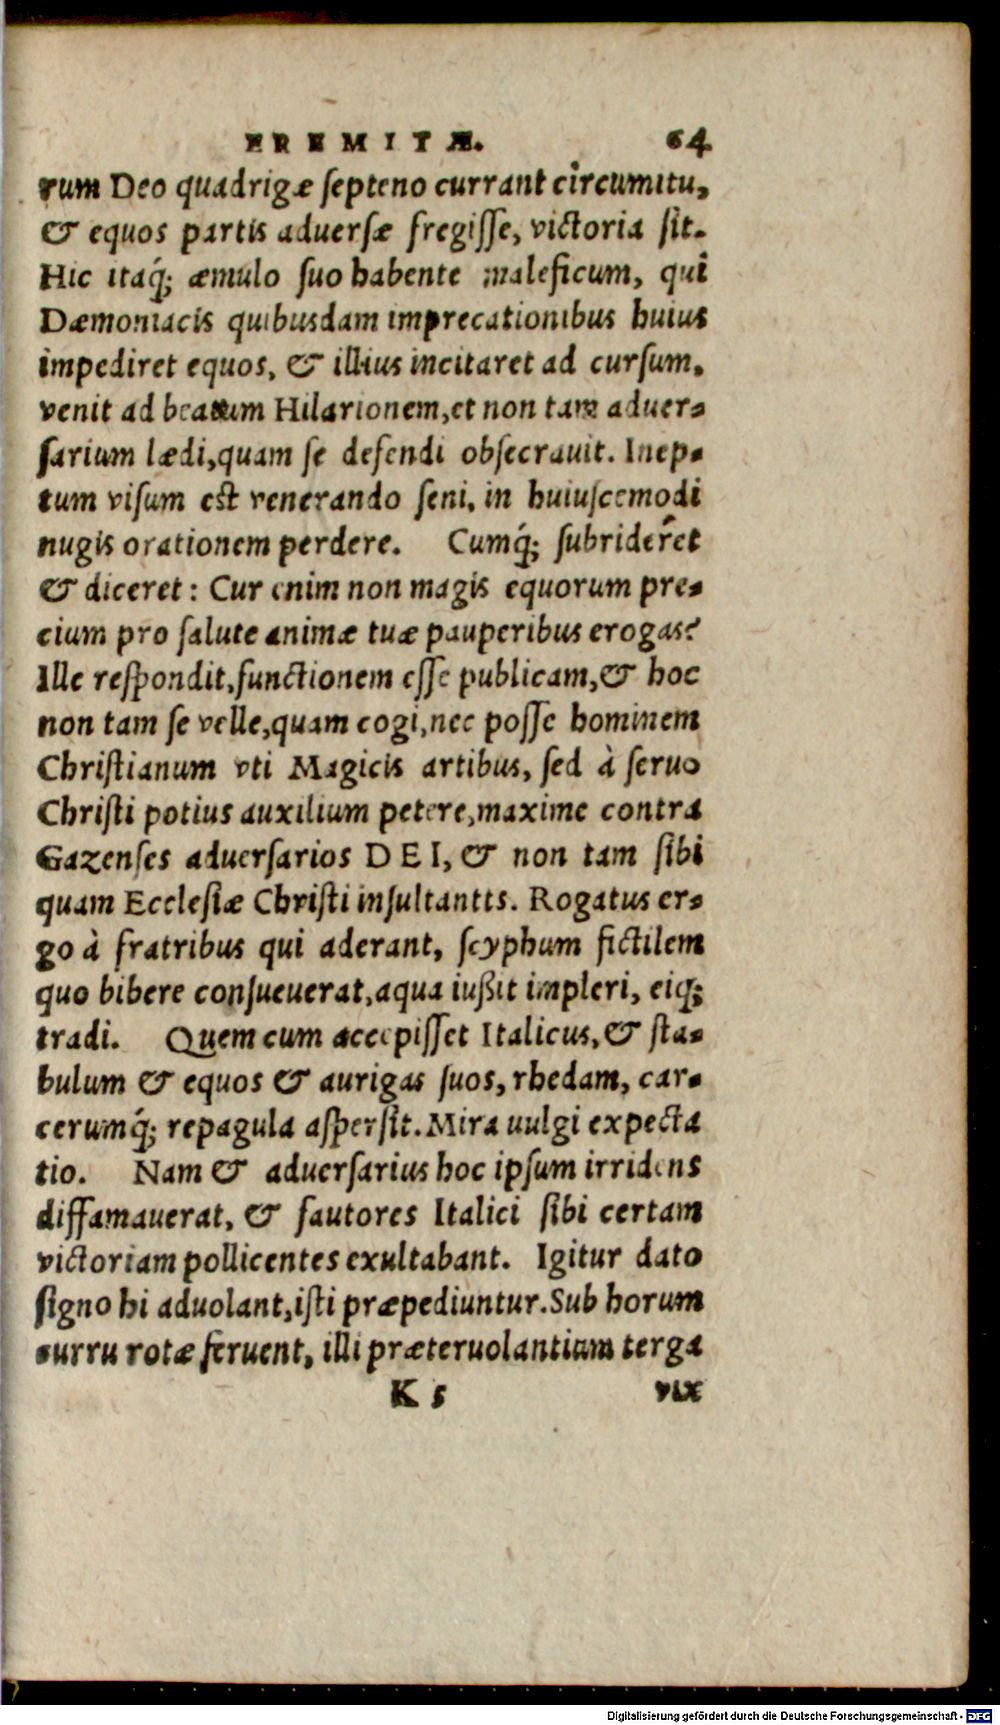 EREMITÆ. 64
rum Deo quadrigæ septeno currant circumitu,
& equos partis aduersæ fregisse, victoria sit.
Hic itaq́; æmulo suo habente maleficum, qui
Dæmoniacis quibusdam imprecationibus huius
impediret equos, & illius incitaret ad cursum.
venit ad beatum Hilarionem, et non tam aduer-
sarium lædi, quam se defendi obsecrauit. Inep-
tum visum est venerando seni, in huiuscemodi
nugis orationem perdere. Cumq́; subrideret
& diceret: Cur enim non magis equorum pre-
cium pro salute animæ tuæ pauperibus erogas?
Ille respondit, functionem esse publicam, & hoc
non tam se velle, quam cogi, nec posse hominem
Christianum vti Magicis artibus, sed à seruo
Christi potius auxilium petere, maxime contra
Gazenses aduersarios DEI, & non tam sibi
quam Ecclesiæ Christi insultantts. Rogatus er-
go à fratribus qui aderant, scyphum fictilem
quo bibere consueuerat, aqua iußit impleri, eiq;
tradi. Quem cum accepisset Italicus, & sta-
bulum & equos & aurigas suos, rhedam, car-
cerumq́; repagula aspersit. Mira uulgi expecta
tio. Nam & aduersarius hoc ipsum irridens
diffamauerat, & fautores Italici sibi certam
victoriam pollicentes exultabant. Igitur dato
signo hi aduolant, isti præpediuntur. Sub horum
curru rotæ feruent, illi præteruolantium terga
K 5 vix
Digitalisierung gefördert durch die Deutsche Forschungsgemeinschaft - DFG